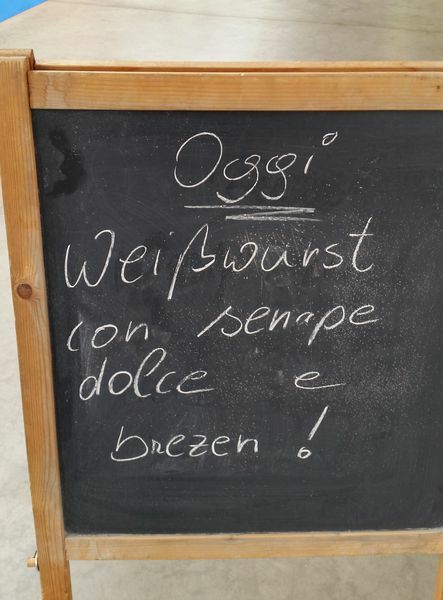 Oggi
Weißwurst
con senape
dolce e
brezen!